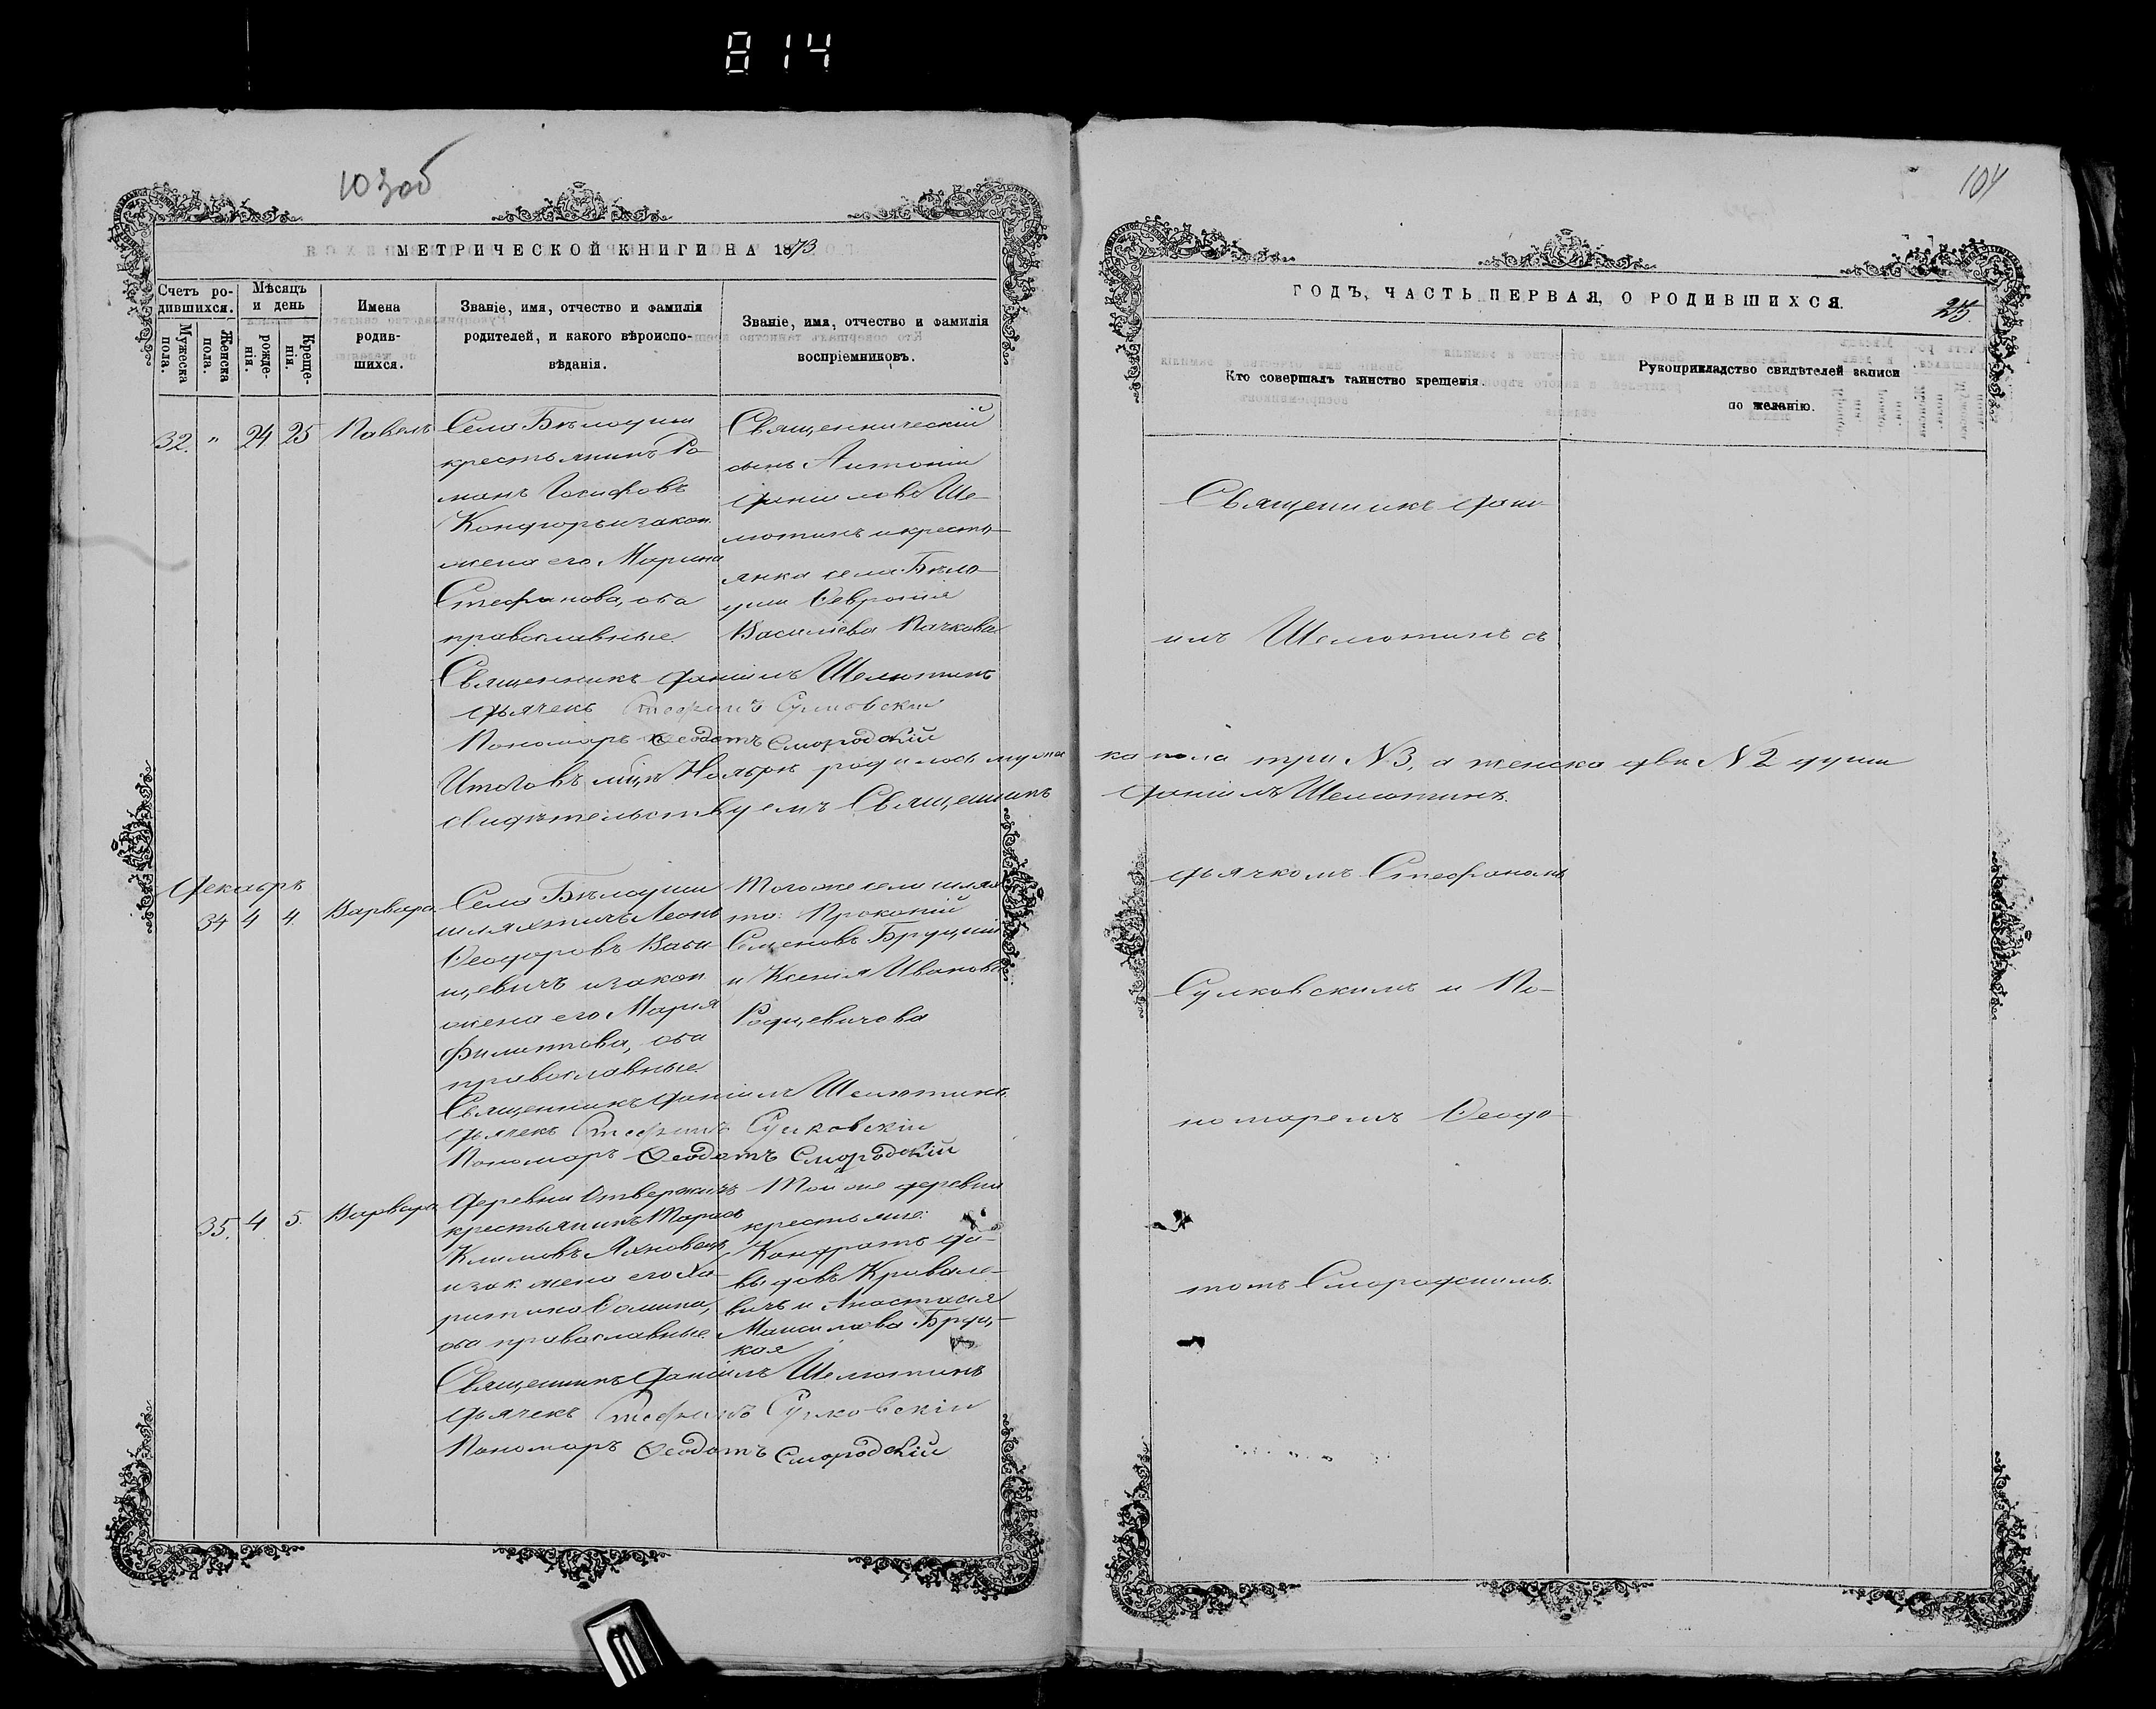 814
103 об
МЕТРИЧЕСКОЙ КНИГИ НА 1873
Счетъ ро-
дившихся.
Мужеска пола.
Женска пола.
Мѣсяцъ
и день
рожде-
нія.
Креще-
нія.
Имена
родив-
шихся.
Званіе, имя, отчество и фамилія
родителей, и какого вѣроиспо-
вѣданія.
Званіе, имя, отчество и фамилія
воспріемниковъ.
32. " 24 25 Павелъ
Села Бѣлоуши
крестьянинъ Ро-
манъ Іосифовъ
жена его Марина
Стефанова, оба
православные
Священническій
сынъ Антоній
Даніиловъ Ше-
лютинъ и кресть-
янка села Бѣло-
уши Февронія
Васильева Пачкова
Священникъ Даніилъ Шелютинъ
Дьячекъ Стефанъ Сулковскій
Пономарь Феодотъ Смородскій
Итого въ мцѣ Ноябрѣ родилось муже
свидѣтельствуемъ Священникъ
Декабрь
34 4 4. Варвара
Села Бѣлоуши
шляхтичъ Леонъ
Феодоровъ Ваки
цевичъ и закон
жена его Марія
Филиппова, оба
православные.
Того же села шлях
та: Прокопій
Семеновъ Бруцкій
и Ксенія Иванова
Родцевичова
Священникъ Даніилъ Шелютинъ.
Дьячекъ Стефанъ Сулковскій
Пономарь Феодотъ Смородскій
35. 4 5. Варвара
Деревни Отвержичъ
крестьянинъ Тарасъ
Климовъ Яхновецъ
и зак. жена его Ха-
ритина Фомина,
оба православные.
Той же деревни
крестьяне:
Кондратъ Да-
выдовъ Кривале-
вичъ и Анастасія
Мануилова Бруц-
кая
Священникъ Даніилъ Шелютинъ
Дьячекъ Стефанъ Сулковскій
Пономарь Феодотъ Смородскій
104
ГОДЪ, ЧАСТЬ ПЕРВАЯ, О РОДИВШИХСЯ.
25.
Кто совершалъ таинство крещенія.
Рукоприкладство свидѣтелей записи
по желанію.
Священникъ Дані-
илъ Шелютинъ съ
ка пола три №3, а женска двѣ №2 души
Даніилъ Шелютинъ.
дьячкомъ Стефаномъ
Сулковскимъ и По-
номаремъ Феодо-
томъ Смородскимъ.